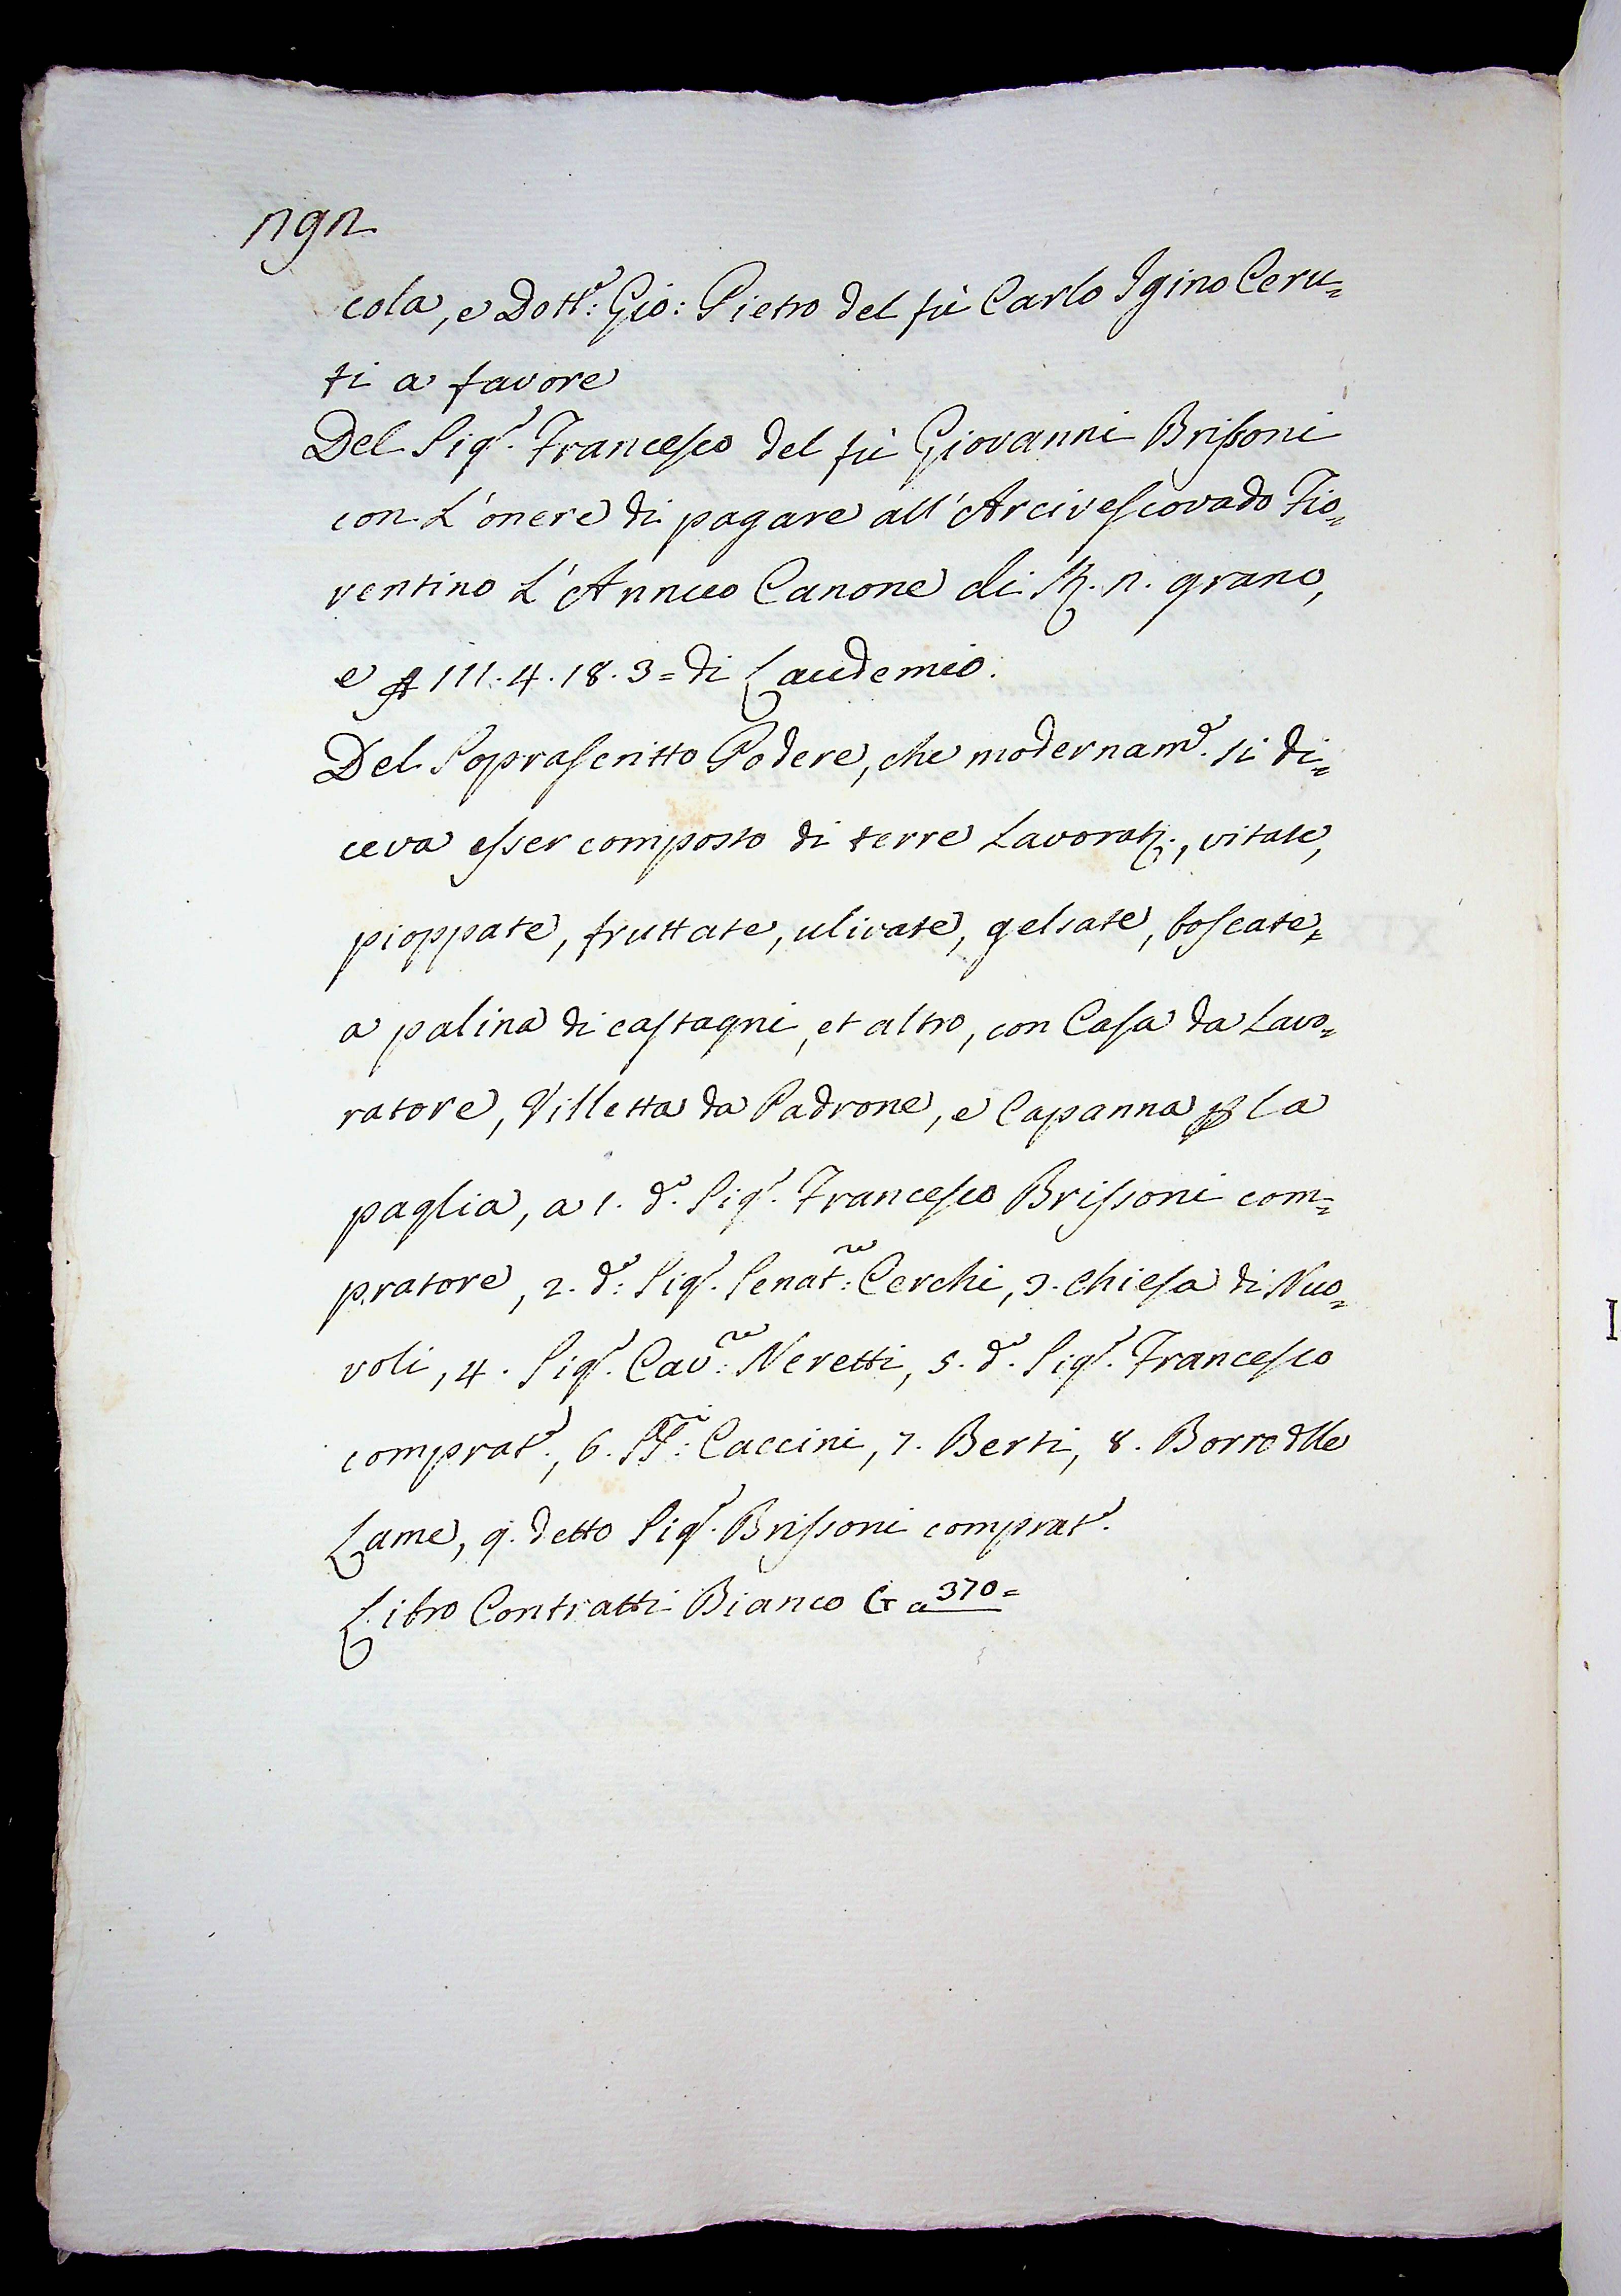 cola, e Dott.e: Gio: Pietro del fù Carlo Igino Ceru=
ti a favore
Del Sig.r Francesco del fù Giovanni Brissoni
con L'onere di pagare all'Arcivescovado Fio=
rentino L'Annuo Canone di n. grano,
e 111. 4. 18. 3= di Laudemio.
Del Soprascritto Podere, che modernam.e si di=
ceva esser composto di terre Lavorat:, vitate,
pioppate, fruttate, ulivate, gelsate, boscate,
a palina di castagni, et altro, con Casa da Lavo=
ratore, Villetta da Padrone, e Capanna p la
paglia, a 1. d.o Sig.r Francesco Brissoni com=
pratore, 2. d.o: Sig.r Senat.re: Cerchi, 3. Chiesa di Nuo=
voli, 4. Sig.r Cav.re: Neretti, 5. d.o Sig.r Francesco
comprat.e, 6. SS.ri: Caccini, 7. Berti, 8. Borro dlle
Lame, 9. detto Sig.r Brissoni comprat.e
Libro Contratti Bianco G a 370=